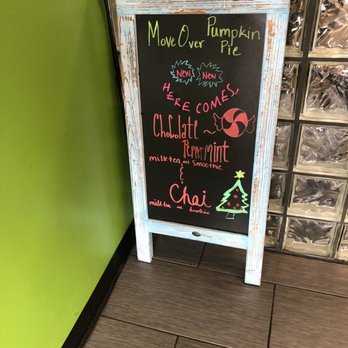 Move Over Pumpkin
Pie
NEW! NEW!
HERE COMES,
Chocolate
Peppermint
milk tea and smoothie
&
Chai
milk tea and smoothie